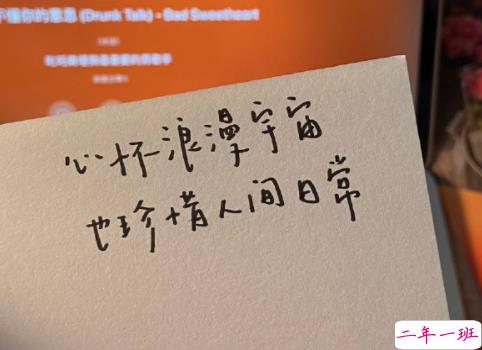 不懂你的意思 (Drunk Talk) - Bad Sweetheart
心怀浪漫宇宙
也珍惜人间日常
二年一班